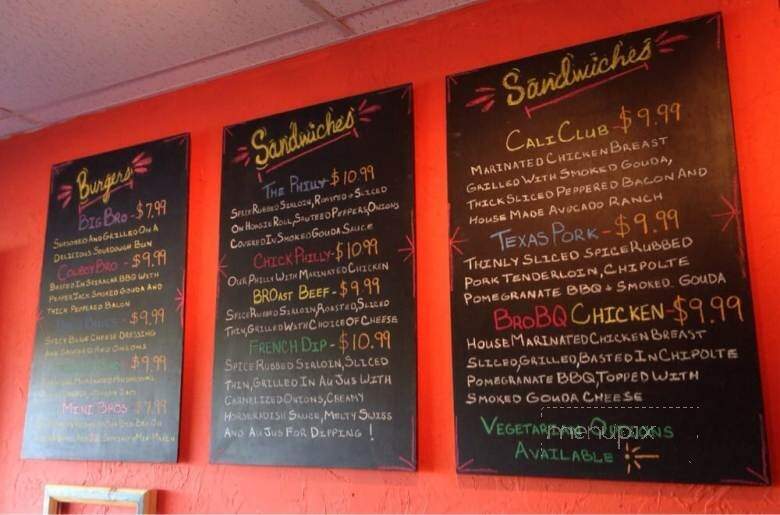 Burgers
Big Bro - $7.99
Seasoned And Grilled On A
Delicious Sourdough Bun
Cowboy Bro - $9.99
Basted In Sriracha BBQ With
Pepper Jack Smoked Gouda And
Thick Peppered Bacon
$9.99
Spicy Blue Cheese Dressing
And Sauteed Red Onions
$9.99
Mini Bros $7.99
Sandwiches
The Philly $10.99
Spice Rubbed Sirloin, Roasted & Sliced
On Hoagie Roll, Sauteed Peppers, Onions
Covered In Smoked Gouda Sauce
Chick Philly - $10.99
Our Philly With Marinated Chicken
BROast Beef - $9.99
Spice Rubbed Sirloin, Roasted, Sliced
Thin, Grilled With Choice Of Cheese
French Dip - $10.99
Spice Rubbed Sirloin, Sliced
Thin, Grilled In Au Jus With
Carmelized Onions, Creamy
Horseradish Sauce, Melty Swiss
And Au Jus For Dipping !
Sandwiches
Cali Club - $9.99
Marinated Chicken Breast
Grilled With Smoked Gouda,
Thick Sliced Peppered Bacon And
House Made Avocado Ranch
Texas Pork - $9.99
Thinly Sliced Spice Rubbed
Pork Tenderloin, Chipolte
Pomegranate BBQ + Smoked Gouda
BroBQ Chicken - $9.99
House Marinated Chicken Breast
Sliced, Grilled, Basted In Chipolte
Pomegranate BBQ, Topped With
Smoked Gouda Cheese
Vegetarian Options
Available
menupix